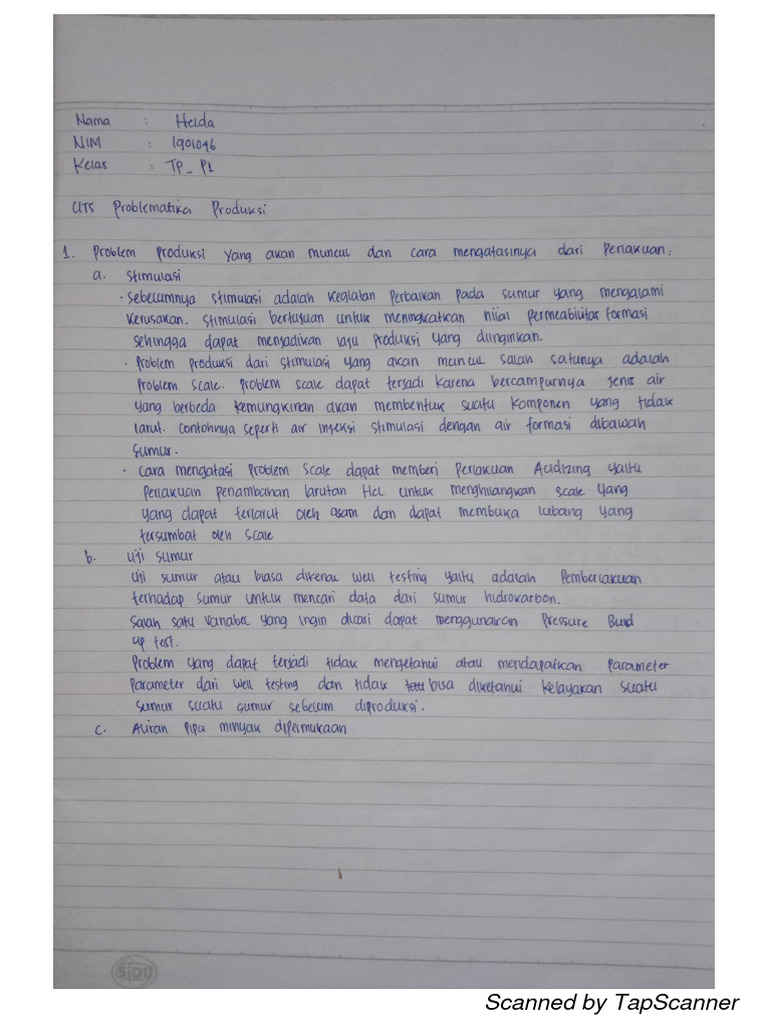 Nama : Helda
NIM : 1901046
Kelas : TP_P1
UTS Problematika Produksi
1. Problem Produksi yang akan muncul dan cara mengatasinya dari Perlakuan:
a. Stimulasi
• Sebelumnya stimulasi adalah kegiatan Perbaikan pada sumur yang mengalami
kerusakan. Stimulasi bertujuan untuk meningkatkan nilai Permeabilitas formasi
sehingga dapat menjadikan laju Produksi yang diinginkan.
• Problem Produksi dari stimulasi yang akan muncul salah satunya adalah
Problem scale. Problem scale dapat terjadi karena bercampurnya jenis air
yang berbeda kemungkinan akan membentuk suatu komponen yang tidak
larut. Contohnya seperti air injeksi stimulasi dengan air formasi dibawah
sumur.
• Cara mengatasi Problem Scale dapat memberi Perlakuan Acidizing yaitu
Perlakuan Penambahan larutan HCL untuk menghilangkan scale yang
yang dapat terlarut oleh asam dan dapat membuka lubang yang
tersumbat oleh scale
b. Uji sumur
Uji sumur atau biasa dikenal well testing yaitu adalah Pemberlakuan
terhadap sumur untuk mencari data dari sumur hidrokarbon.
Salah satu Variabel yang ingin dicari dapat menggunakan Pressure Build
up test.
Problem yang dapat terjadi tidak mengetahui atau mendapatkan Parameter
Parameter dari well testing dan tidak bisa diketahui kelayakan suatu
sumur suatu sumur sebelum diproduksi.
c. Aliran Pipa minyak dipermukaan
SIDU
Scanned by TapScanner